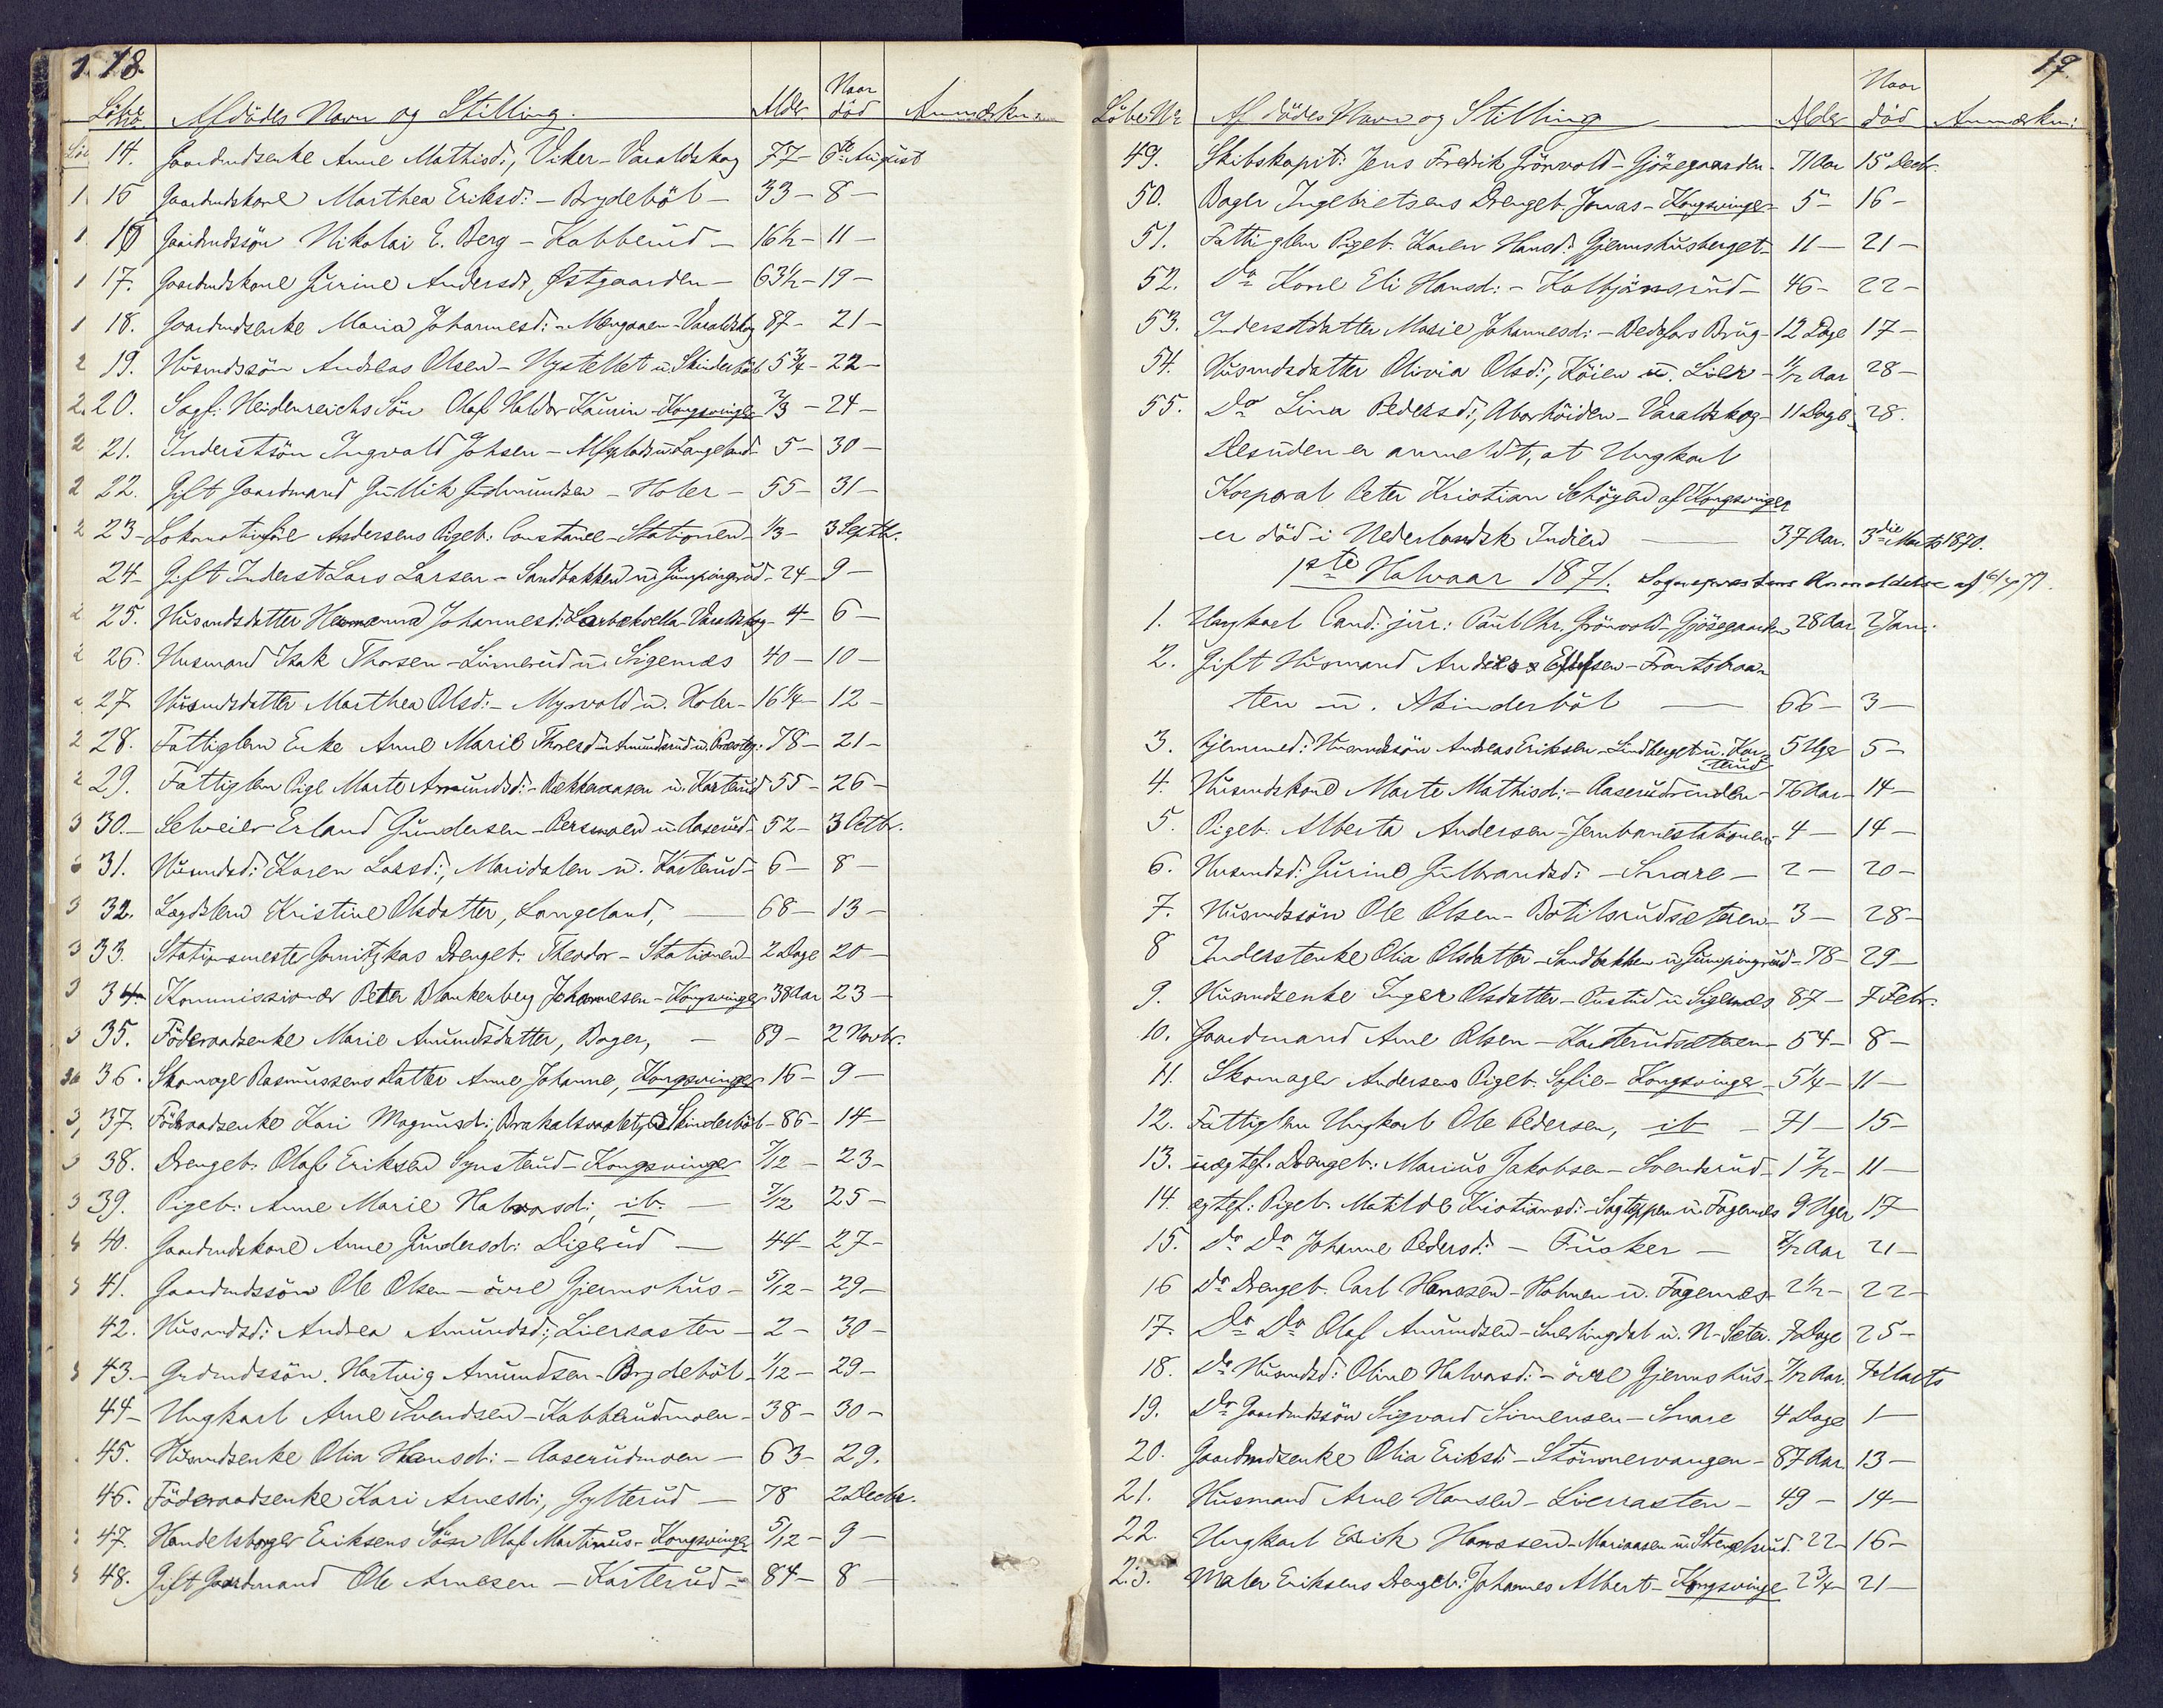 18.
Löbe No. Afdödes Navn og Stilling. Alder Naar död Anmærkn.
14. Gaardmdsenke Anne Mathisd:, Viker - Varaldskog 77 - 6te August
15 Gaardmdskone Marthea Eriksd: - Brydeböl - 33 - 8 -
16 Gaardmdssøn Nikolai E. Berg - Kabberud - 16½ - 11 -
17. Gaardmdskone Gurine Andersd:, Østgaarden - 63½ - 19 -
18. Gaardmdsenke Maria Johannesd: - Mengaaen - Varaldskog 87 - 21 -
19. Husmdssön Andreas Olsen - Nystellet u. Skinderböl 5¾ - 22 -
20. Sagf: Heidenreichs Sön Olaf Haldor Kaurin - Kongsvinger ⅔ - 24 -
21. Inderstsön Ingvald Johsen - Alfsplads u. Langeland - 5 - 30 -
22. Gift Gaardmand Gullik Gudmundsen - Holer - 55 - 31 -
23 - Lokomotivför Andersens Pigeb: Constance - Stationen - ⅓ - 3 Septb.
24 - Gift Inderst Lars Larsen - Sandbakken u. Gumpingrud - 24 - 9 -
25. Husmdsdatter Hermanna Johannesd: - Varaldskog - 4 - 6 -
26. Husmand Isak Thorsen - Linnerud u. Sigernæs 40 - 10 -
27 Husmdsdatter Marthea Olsd: - Myrvold u. Holer - 16¼ - 12 -
28. Fattiglem Enke Anne Marie Thoresd - Amundsrud u. Præsteg: 78 - 21 -
29. Fattiglem Pige Marte Amundsd: - Bekkeraasen u. Karterud 55 - 26 -
30. - Selveier Erland Gundersen - Persmoen u. Aaserud - 52 - 3 Octbr.
31. Husmdsd: Karen Larsd:, Maridalen u. Karterud - 6 - 8 -
32. Lægdslem Kristine Olsdatter, Langeland, - 68 - 13 -
33. Stationsmester Gomitzkas Drengeb. Theodor - Stationen - 2 Dage 20 -
34. Kommissionær Peter Blankenberg Johannesen - Kongsvinger 38 Aar 23 -
35. Föderaadsenke Marie Amundsdatter, Boger, - 89 - 2 Novbr.
36. Skomager Rasmussens Datter Anne Johanne, Kongsvinger 16 - 9 -
37. Föderaadsenke Kari Magnusd:, u. Skinderböl - 86 - 14 -
38. Drengeb. Olaf Eriksen Synsterud - Kongsvinger 7/12 - 23 -
39. Pigeb: Anne Marie Halvorsd:, ib. - 7/12 25 -
40. Gaardmdskone Anne Gundersd: Digerud - 44 - 27 -
41. Gaardmdssön Ole Olsen - övre Gjermshus - 5/12 - 29 -
42. Husmdsd: Andrea Amundsd:, Lierkasten - 2 - 30 -
43. - Grdmdssön. Hartvig Amundsen - Brydeböl - 1/12 - 29 -
44 - Ungkarl Arne Svendsen - Kabberudmoen - 38 - 30 -
45. Husmdsenke Olia Hansd: - Aaserudmoen - 63 - 29.
46. Föderaadsenke Kari Arnesd:, Gylterud - 78 2 Decbr.
47. Handelsborger Eriksens Sön Olaf Martinus - Kongsvinger 5/12 - 9 -
48. Gift Gaardmand Ole Arnesen - Karterud - 84 - 8 -
19.
Löbe Nr Afdödes Navn og Stilling Alder Naar död Anmærkn:
49. Skibskapit: Jens Fredrik Grönvold - Gjösegaarden - 71 Aar 15 Decbr.
50. Bager Ingebretsens Drengeb. Jonas - Kongsvinger - 5 - 16 -
51. Fattiglem Pigeb. Karen Hansd: Gjermshusberget - 11 - 21 -
52. Do Kone Eli Hansd: - Kolbjönsrud - 46 - 22 -
53. Inderstdatter Marie Johannesd: - Bedafors Brug - 12 Dage 17 -
54. Husmdsdatter Olivia Olsd:, Köien u. Lier - 1/12 Aar 28 -
55. Do Lina Pedersd:, Aborhöiden - Varaldskog - 11 Dage 28.
Desuden er anmeldt, at Ungkarl
Korporal Peter Kristian Schöyen af Kongsvinger
er död i Nederlandsk Indien - 37 Aar. 3die Marts 1870.
1ste Halvaar 1871. Sogneprestens Anmeldelse af
1. Ungkarl Cand: jur: Paul Chr. Grönvold - Gjösegaarden 28 Aar 2 Jan:
2. Gift Husmand Anders - Frantsbraa-
ten u. Skinderböl - 66 - 3 -
3. hjemmed: Husmdssön Andreas Eriksen - Lindberget u. Kar-
terud 5 Uger 5 -
4. Husmdskone Marte Mathisd: - Aaserudrinden - 76 Aar - 14 -
5. Pigeb. Alberta Andersen - Jernbanestationen - 4 - 14 -
6. Husmdsd: Gurine Gulbrandsd: - Snare - 2 - 20 -
7. Husmdssön Ole Olsen - Botilsrudsæteren - 3 - 28 -
8 Inderstenke Olia Olsdatter - Sandbakken u. Gumpingrud - 78 - 29 -
9. Husmdsenke Inger Olsdatter - Rustad u. Sigernæs 87 - 7 Febr.
10. Gaardmand Arne Olsen - Karterudsæteren - 54 - 8 -
11. Skomager Andersens Pigeb. Sofie - Kongsvinger - 5¼ - 11 -
12. Fattiglem Ungkarl Ole Pedersen, ib - 71 - 15 -
13. uægtef. Drengeb: Marius Jakobsen - Svenkerud - 1½ - 11 -
14. egtef: Pigeb. Matilde Kristiansd: - Sagteppen u. Fagernæs 9 Uger 17 -
15. Do Do Johanne Pedersd: - Fusker - Aar 21 -
16 Do Drengeb. Carl Hanssen - Holmen u. Fagernæs - 2½ - 22 -
17. Do Do Olaf Amundsen - Snerlingdal u. N. Sæter. 7 Dage 25 -
18. Do Husmdsd: Oline Halvorsd: - övre Gjermshus - 7/12 Aar. 7 Marts
19. Do Gaardmdssön Sigvard Simensen - Snare 4 Dage 1 -
20. Gaardmdsenke Olia Eriksd: - Stömnervangen - 87 Aar. 13 -
21. Husmand Arne Hansen - Lierrasten - 49 - 14 -
22. Ungkarl Erik Hanssen - Mariaasen u. Strengelsrud. 22 - 16 -
23. Maler Eriksens Drengeb: Johannes Albert - Kongsvinger 2¾ - 21 -